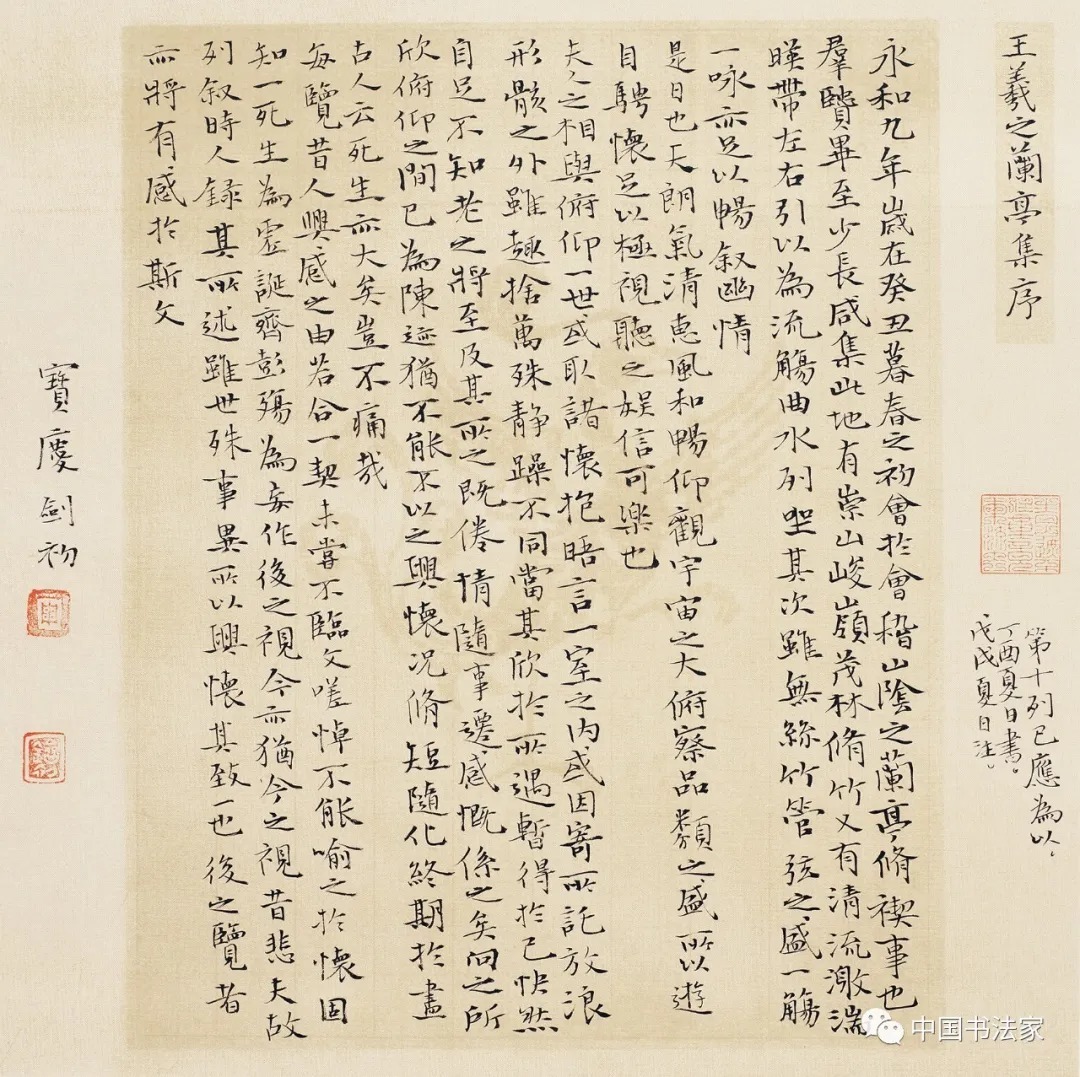 王羲之蘭亭集序
第十列已應為以。
丁酉夏日書。
戊戌夏日注。
永和九年歲在癸丑暮春之初會於會稽山陰之蘭亭脩禊事也
羣賢畢至少長咸集此地有崇山峻嶺茂林脩竹又有清流激湍
暎帶左右引以為流觴曲水列坐其次雖無絲竹管弦之盛一觴
一咏亦足以暢叙幽情
是日也天朗氣清惠風和暢仰觀宇宙之大俯察品類之盛所以遊
目騁懷足以極視聽之娛信可樂也
夫人之相與俯仰一世或取諸懷抱晤言一室之內或因寄所託放浪
形骸之外雖趣捨萬殊静躁不同當其欣於所遇暫得於己快然
自足不知老之將至及其所之既倦情隨事遷感慨係之矣向之所
欣俯仰之間已為陳迹猶不能不以之興懷況脩短隨化終期於盡
古人云死生亦大矣豈不痛哉
每覽昔人興感之由若合一契未嘗不臨文嗟悼不能喻之於懷固
知一死生為虛誕齊彭殤為妄作後之視今亦猶今之視昔悲夫故
列叙時人錄其所述雖世殊事異所以興懷其致一也後之覽者
亦將有感於斯文
寶慶劍初
中国书法家